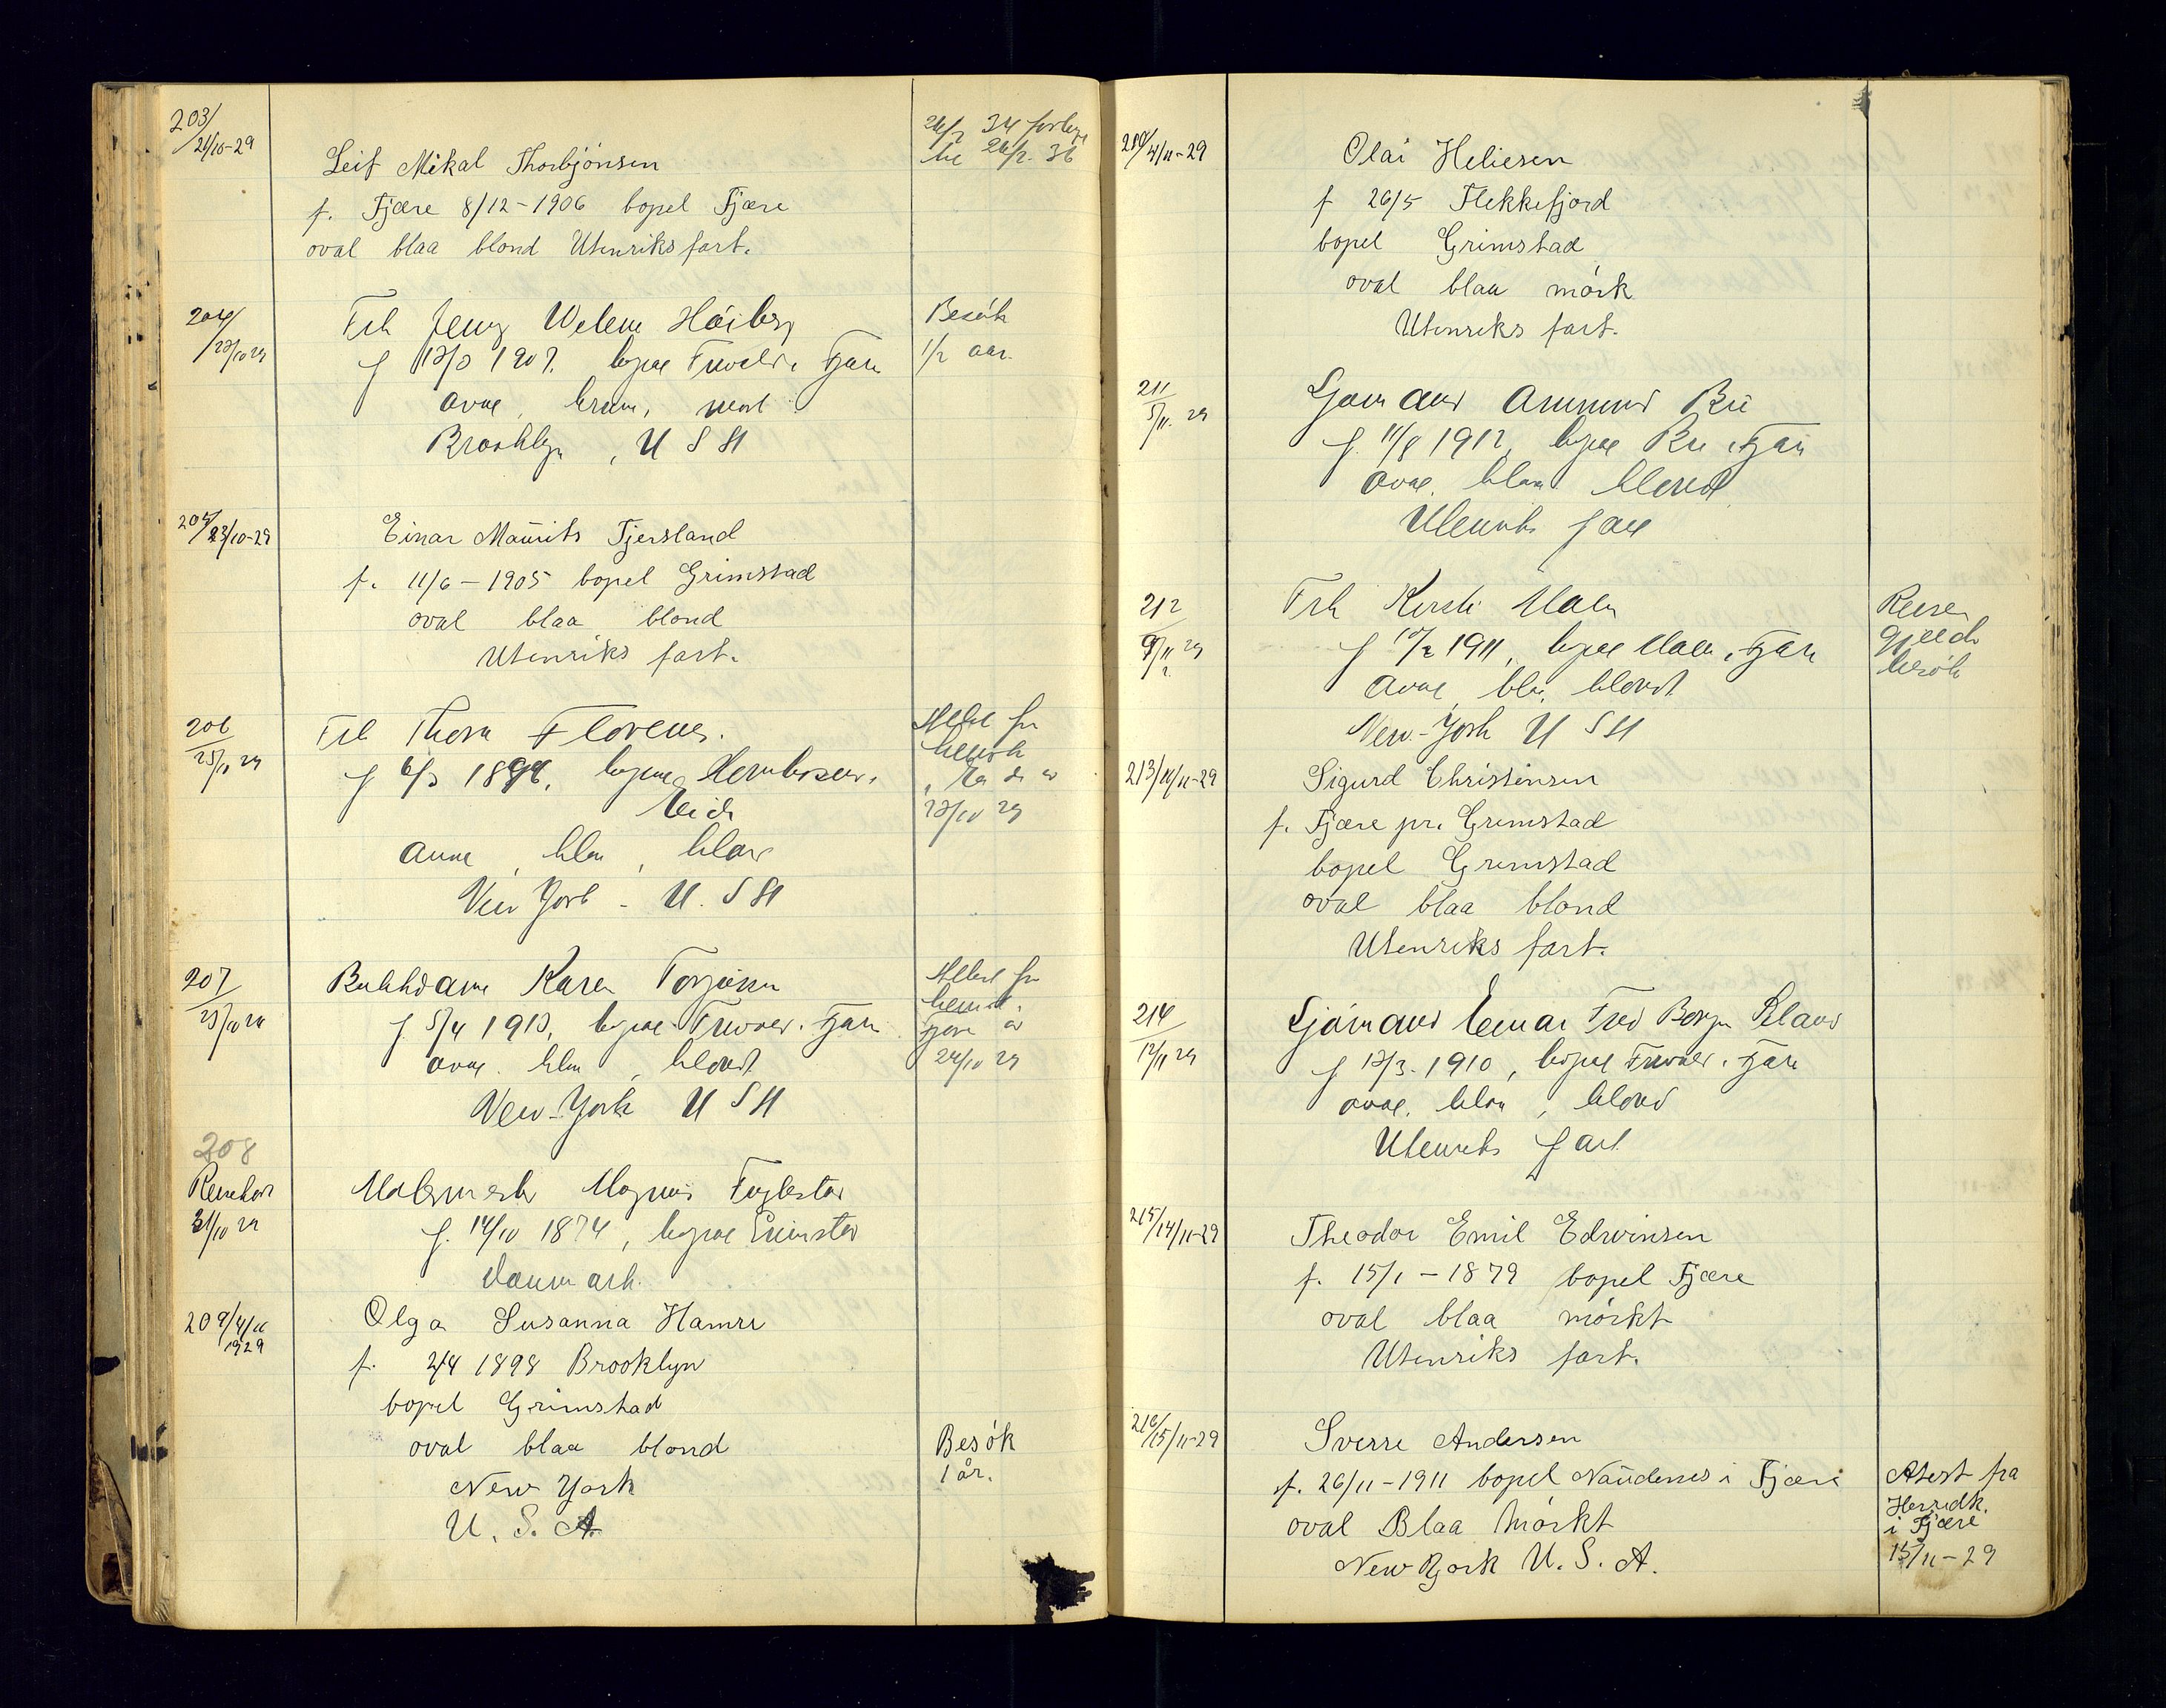 203/
21/10-29
Leif Mikal Thorbjönsen
f. Fjære 8/12-1906 bopel Fjære
oval blaa blond Utenriksfart.
26/2 34
26/2. 36
204/
23/10 29
Frk Jenny Höiberg
f 1907. bopel Fjære
oval, brun, mørk
Brooklyn, U S A
Besök
1/2 aar.
205/
23/10-29
Einar Maurits Fjersland
f. 11/6-1905 bopel Grimstad
oval blaa blond
Utenriks fart.
206
25/10 29
Frk Thora Florenes.
f 6/3 bopel
Eide
oval, blaa, blond
New York - U.S A
Attest fra
23/10 29
207
25/10 29
Karen
f 5/4 1913, bopel Fjære
oval. blaa, blondt
New-York U S A
Attest fra
24/10 29
208
31/10 29
Malermester Magnus Fuglestad
f. 14/10 1874, bopel Grimstad
Danmark.
209/4/11
1929
Olga Susanna Hamre
f. 2/4 1898 Brooklyn
bopel Grimstad
oval blaa blond
New York
U. S. A
Besök
1 år.
210/4/11-29
Olai Heliesen
f 26/5 Flekkefjord
bopel Grimstad
oval blaa mörk
Utenriks fart.
211
5/11. 29
Sjømand Ammund Rii
f. 11/8 1912, bopel Fjære
oval. blaa. blond
Utenriks fart
212
9/11 29
Frk Kirsti
f 1911, bopel Fjære
oval, blaa, blondt
New-York U S A
Reisen
gjelder
besök
213/11/11-29
Sigurd Christensen
f. Fjære pr. Grimstad
bopel Grimstad
oval blaa blond
Utenriks fart.
214
12/11 29
Sjömand Einar
f 1910, bopel Fjære
oval. blaa, blond
Utenriks fart
215/14/11-29
Theodor Emil Edwinsen
f. 15/1-1879 bopel Fjære
oval blaa mörkt
Utenriks fart.
216/15/11-29
Sverre Andersen
f. 26/11-1911 bopel Naudenes i Fjære
oval Blaa Mörkt
New York U. S. A.
Atest fra
Herredk.
i Fjære
15/11-29